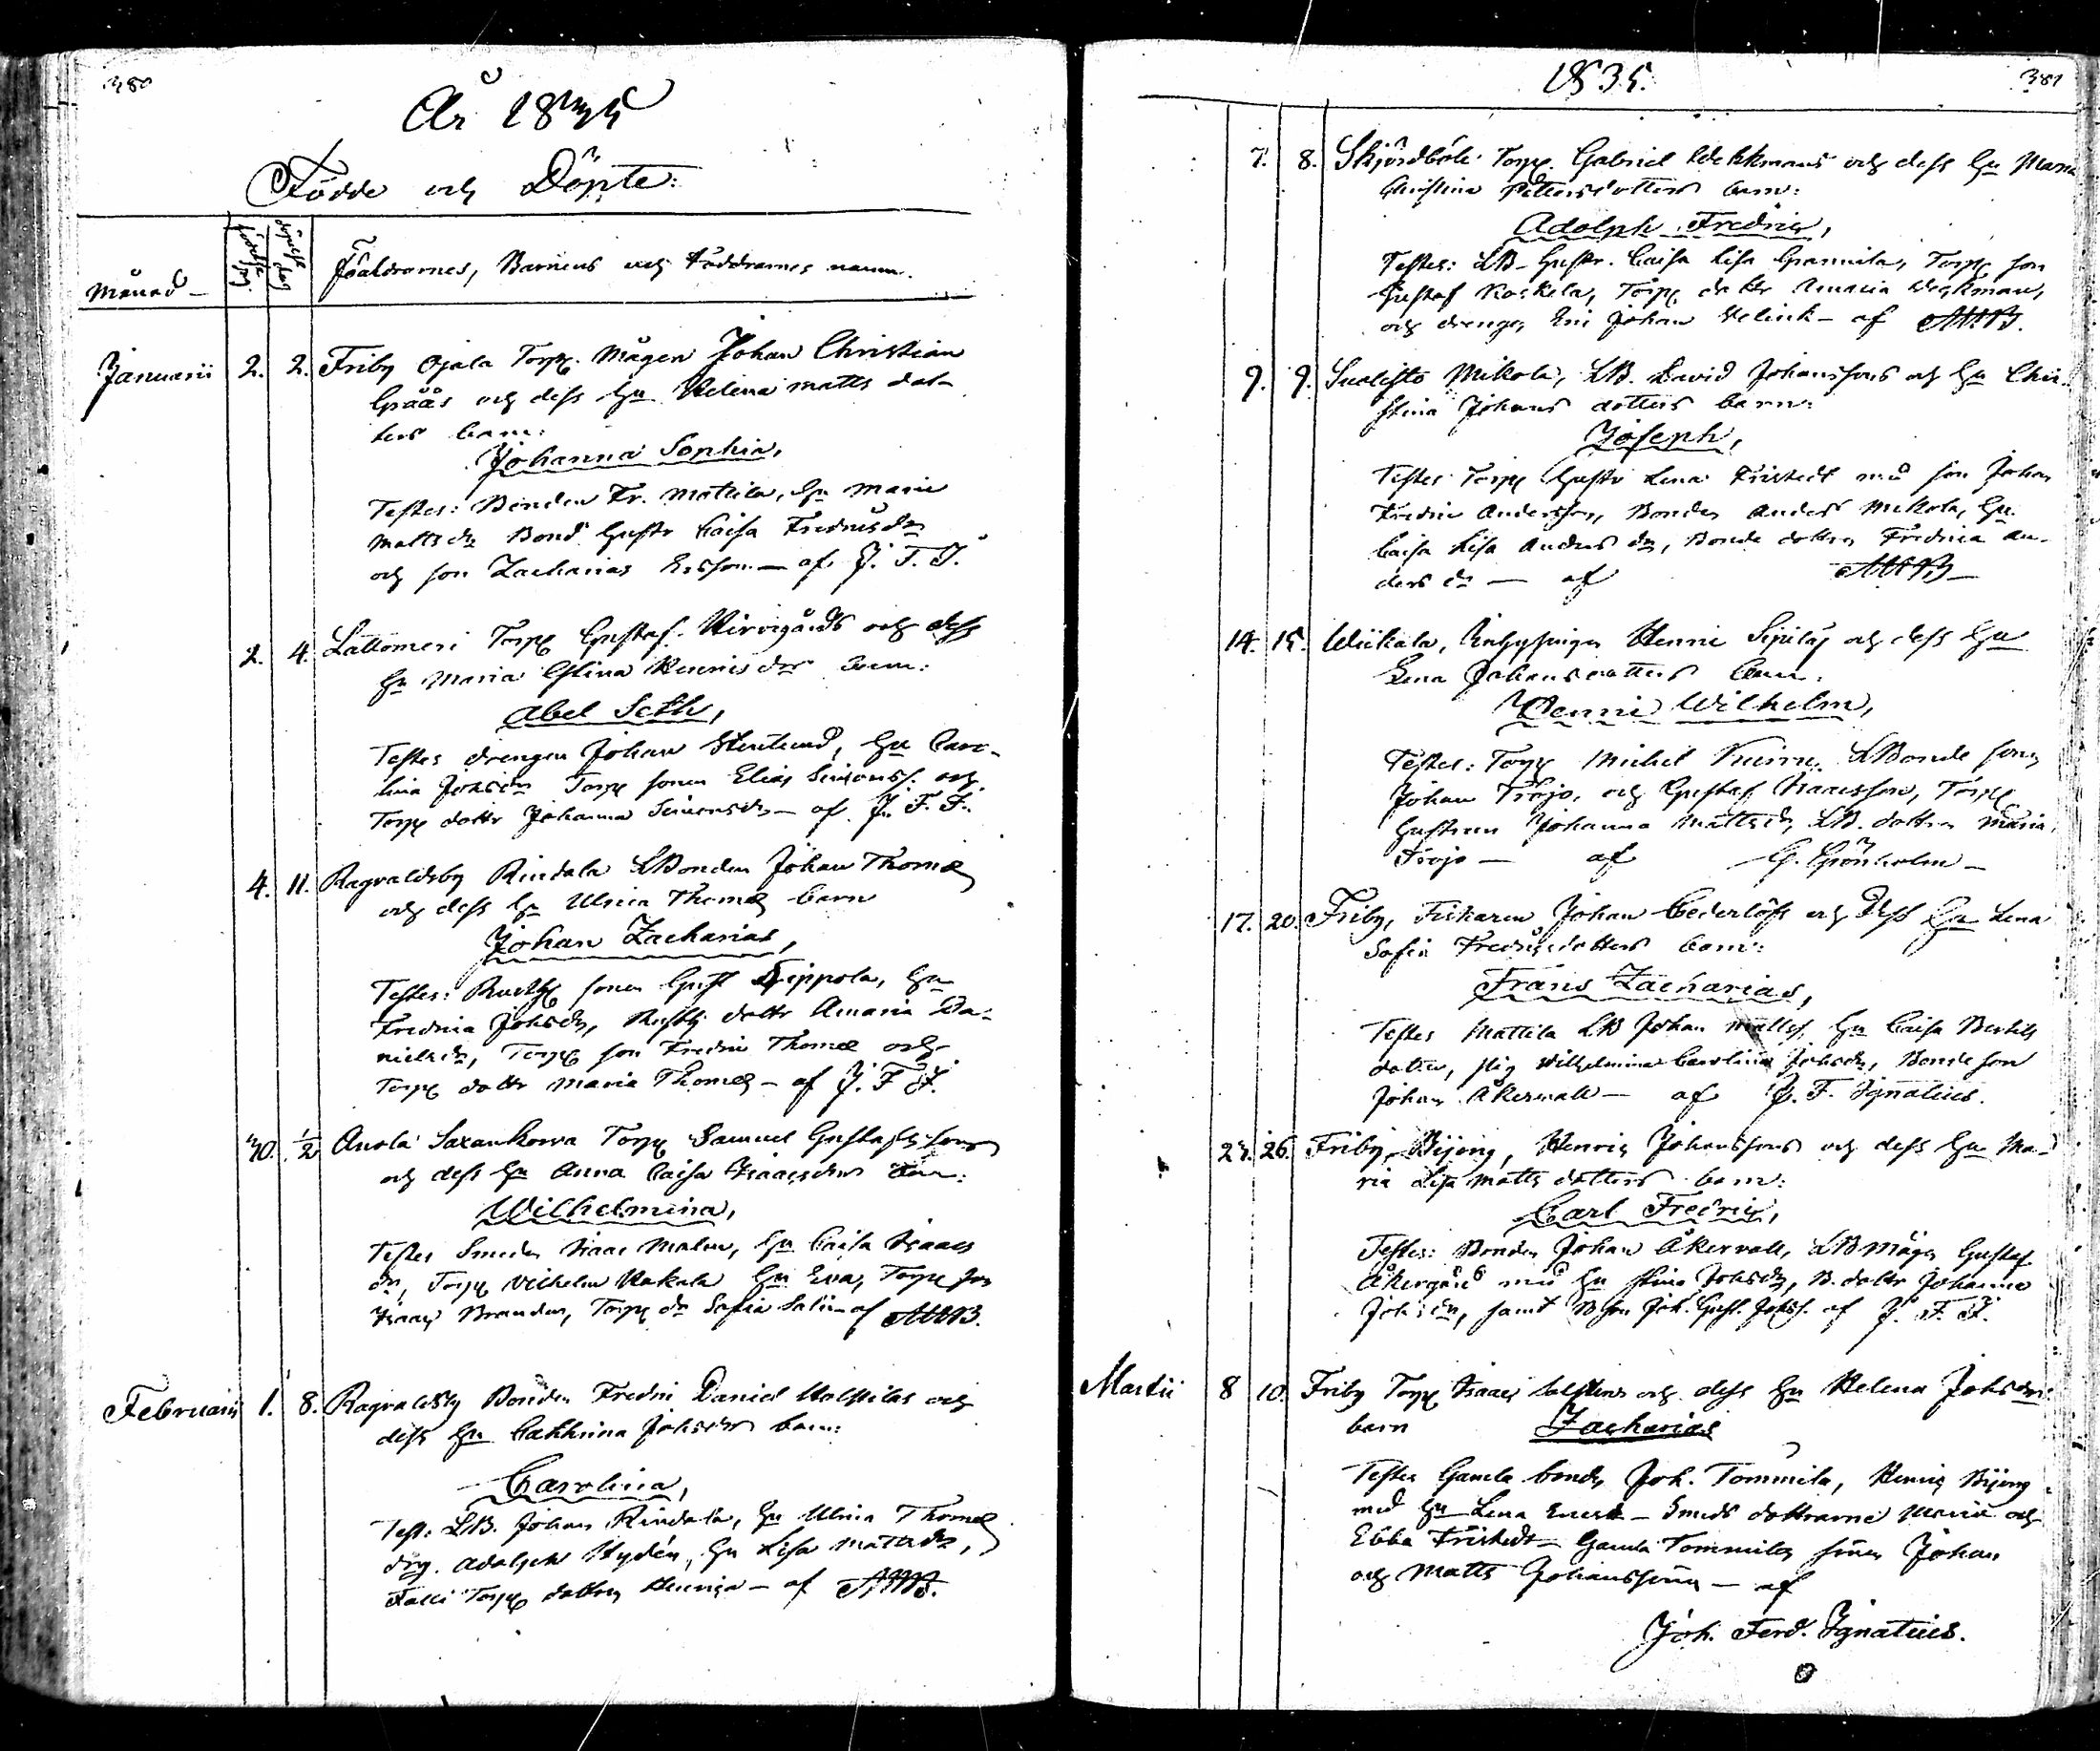 380
År 1835
Födde och Döpte:
Månad
födelse dag
döpelse dag
Föräldrarnes, Barnens och Faddrarnes namn.
Januarii 2. 2. Friby Ojala Torp. Mågen Johan Christian
Gråås och dess Hu Helena Matts dot-
ters barn:
Johanna Sophia,
Testes: Bonden Fr. Mattila, Hu Maria
Matts dr Bond Hustr Caisa Fredriksdr
och son Zacharias Ersson — af J. F. I.
2. 4. Lattomeri Torp Gustaf Hirvigårds och dess
Hu Maria Stina Henricsdrs barn:
Abel Seth,
Testes drengen Johan Stenlund, Hu Caro-
lina Johsdr Torp sonen Elias Simonss. och
Torp dottr Johanna Simonsdr — af J. F. I.
4. 11. Ragvaldsby Rindala LBonden Johan Thomæ
och dess Hu Ulrica Thomæ barn
Johan Zacharias,
Testes: sonen Gust Sippola, Hu
Fredrica Johsdr, dottr Amaria Da-
nielsdr, Torp son Fredric Thomæ och
Torp dottr Maria Thomæ — af J. F. I.
30. 1/2 Anola Saxankorva Torp Samuel Gustafssons
och dess Hu Anna Caisa Isaacsdrs barn:
Wilhelmina,
Testes Smeden Isaac Malm, Hu Caisa Isaacs
dr, Torp Vilhelm Kakala Hu Eva, Torp son
Isaac Brander, Torp dr Sofia Salin af
Februarii 1. 8. Ragvaldsby Bonden Fredric Daniel Holstilas och
dess Hu Cathrina Johsdrs barn:
Carolina,
Test: LB. Johan Rindala, Hu Ulrica Thomæ
drg. Adolph Hydén, Hu Lisa Mattsdr,
Torp dottren Henrica — af
1835.
381
7. 8. Skjördböle Torp. Gabriel Wekkmans och dess Hu Maria
Christina Pettersdotters barn:
Adolph Fredric,
Testes: LB Hustr. Caisa Lisa Grannila, Torp son
Gustaf Koskela, Torp dottr Amaria Wekman,
och drengen Eric Johan Helink — af
9. 9. Suolisto Mikola, LB. David Johanssons och Hu Chri-
stina Johans dotters barn:
Joseph,
Testes Torp Hustr Lena Fristedt med son Johan
Fredric Andersson, Bonden Anders Mikola, Hu
Caisa Lisa Anders dr, Bonde dottren Fredrica An-
ders dr — af
14. 15. Wiikala, Inhysingen Henric Sipilas och dess Hu
Lena Johansdotters barn.
Henric Wilhelm,
Testes: Torp Michel LBonde sonen
Johan Tröjo, och Gustaf Isaacsson, Torp
Hustrun Johanna Mattsdr, LB. dottren Maria
Tröjo — af G. Grönholm —
17. 20. Friby, Fiskaren Johan Cederlöfs och Dess Hu Lena
Sofia Fredricsdotters barn:
Frans Zacharias,
Testes Mattila LB Johan Mattss, Hu Caisa Bertils
dotter, pig Wilhelmina Carolina Johsdr, Bonde son
Johan Åkervall — af J. F. Ignatius.
23. 26. Friby, Bijong, Henric Johanssons och dess Hu Ma-
ria Lisa Matts dotters barn:
Carl Fredric,
Testes: Bonden Johan Åkervall, LBMågen Gustaf
Åkergård med Hu Stina Johsdr, B. dottr Johanna
Johsdr, samt B son Joh. Gust. Johss. af J. F. I.
Martii 8 10. Friby Torp Isaac och dess Hu Helena Johsdrs
barn Zacharias
Testes Gamla bonden Joh. Tommila, Henric Bijong
med Hu Lena — Smeds dottrarne Maria och
Ebba Fristedt — Gamla Tommilas söner Johan
och Matts Johanssöner — af
Joh. Ferd. Ignatius.